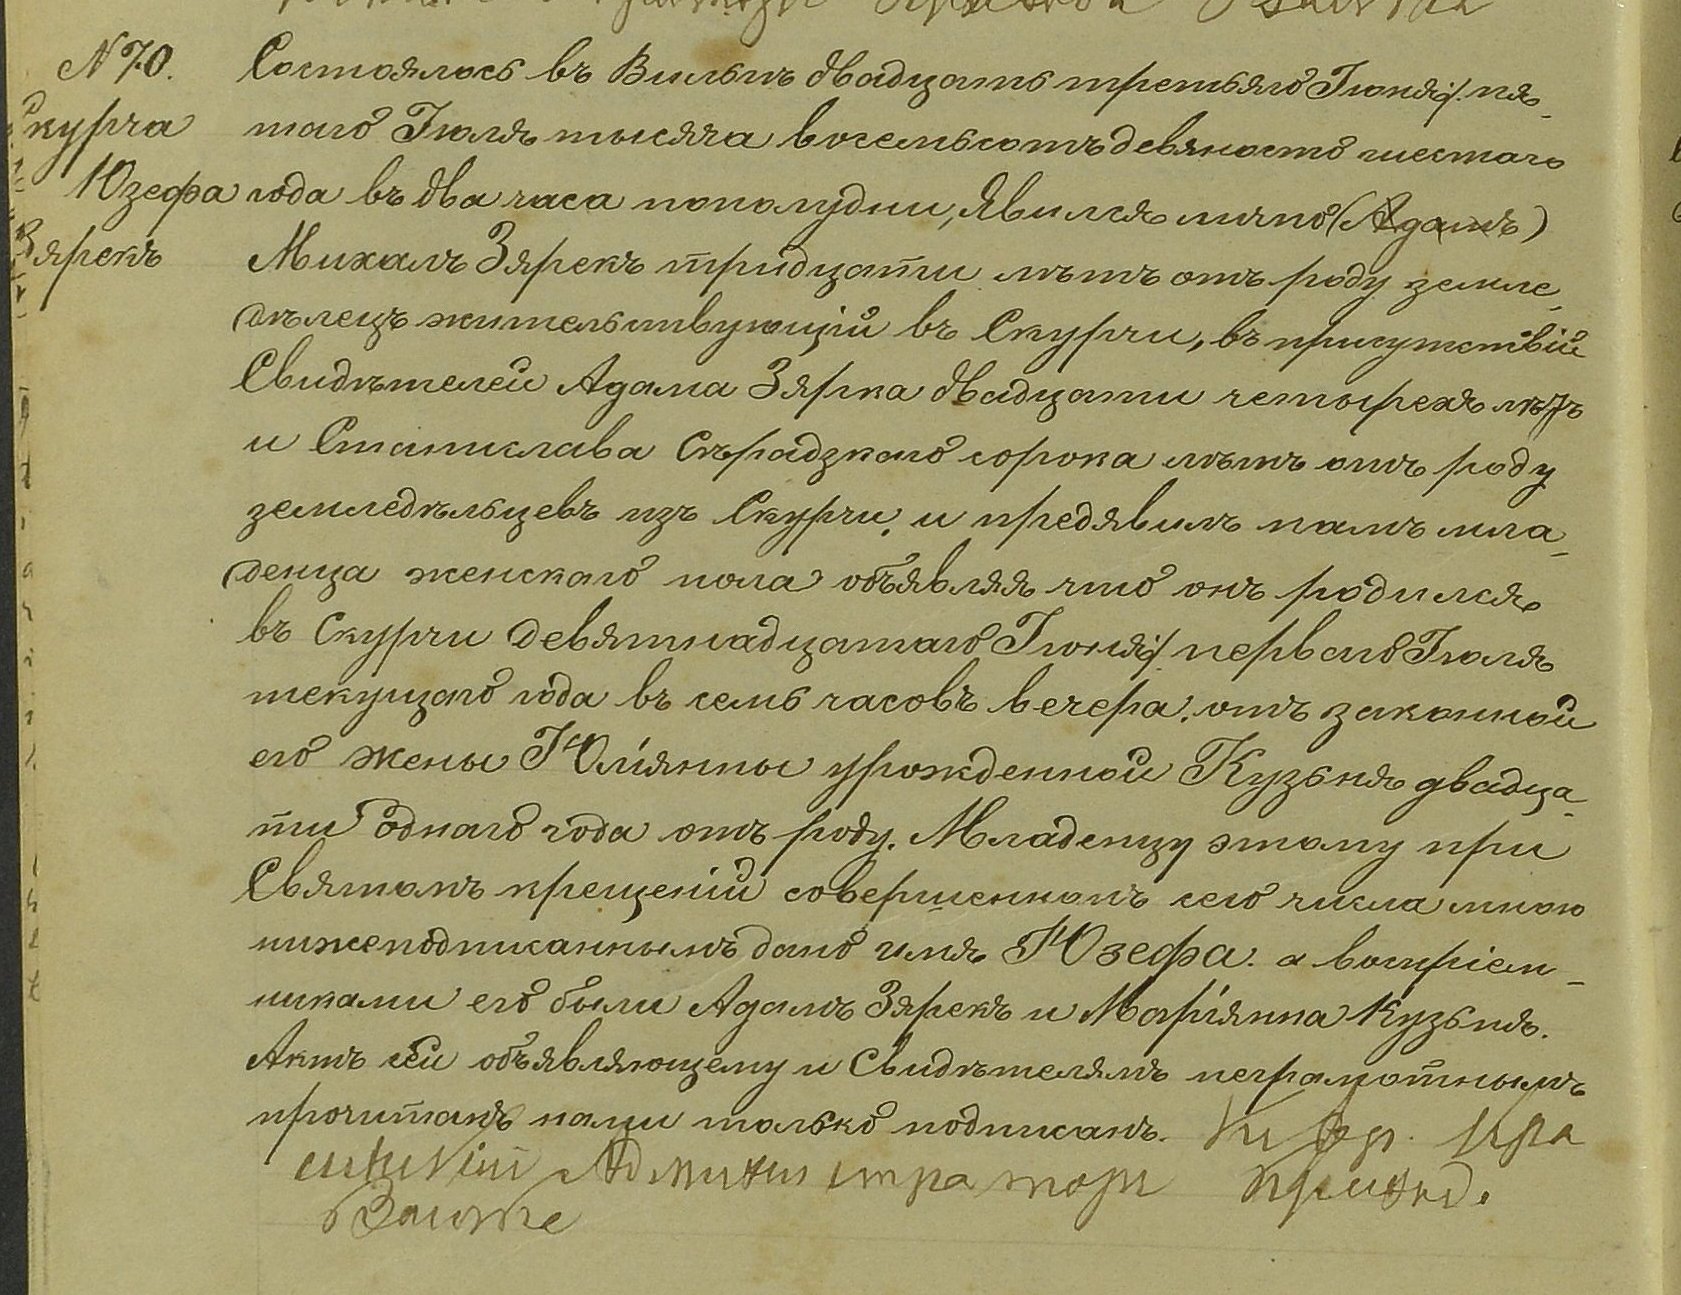 N 70.
Скурча
Юзефа
Зярекъ
Состоялось въ Вильгѣ двадцать третьяго Іюня/ пя-
таго Іюля тысяча восемьсотъ девяносто шестаго
года въ два часа пополудни, явился лично (Адамъ)
Михалъ Зярекъ тридцати лѣтъ отъ роду земле-
дѣлецъ жительствующій въ Скурчи, въ присутствіи
Свидѣтелей Адама Зярка двадцати четырехъ лѣтъ
и Станислава Сѣрадзкаго сорока лѣтъ отъ роду
земледѣльцевъ изъ Скурчи, и предявилъ намъ мла-
денца женскаго пола объявляя что онъ родился
въ Скурчи девятнадцатаго Іюня/ перваго Іюля
текущаго года въ семь часовъ вечера, отъ законной
его жены Юліянны урожденной Кузьня двадца-
ти одного года отъ роду. Младенцу этому при
Святомъ крещеніи совершенномъ сего числа мною
нижеподписаннымъ дано имя Юзефа. а воспріем-
никами его были Адамъ Зярекъ и Маріянна Кузьня.
Актъ сей объявляющему и Свидѣтелямъ неграмотнымъ
прочитанъ нами только подписанъ. Кс
Администраторъ